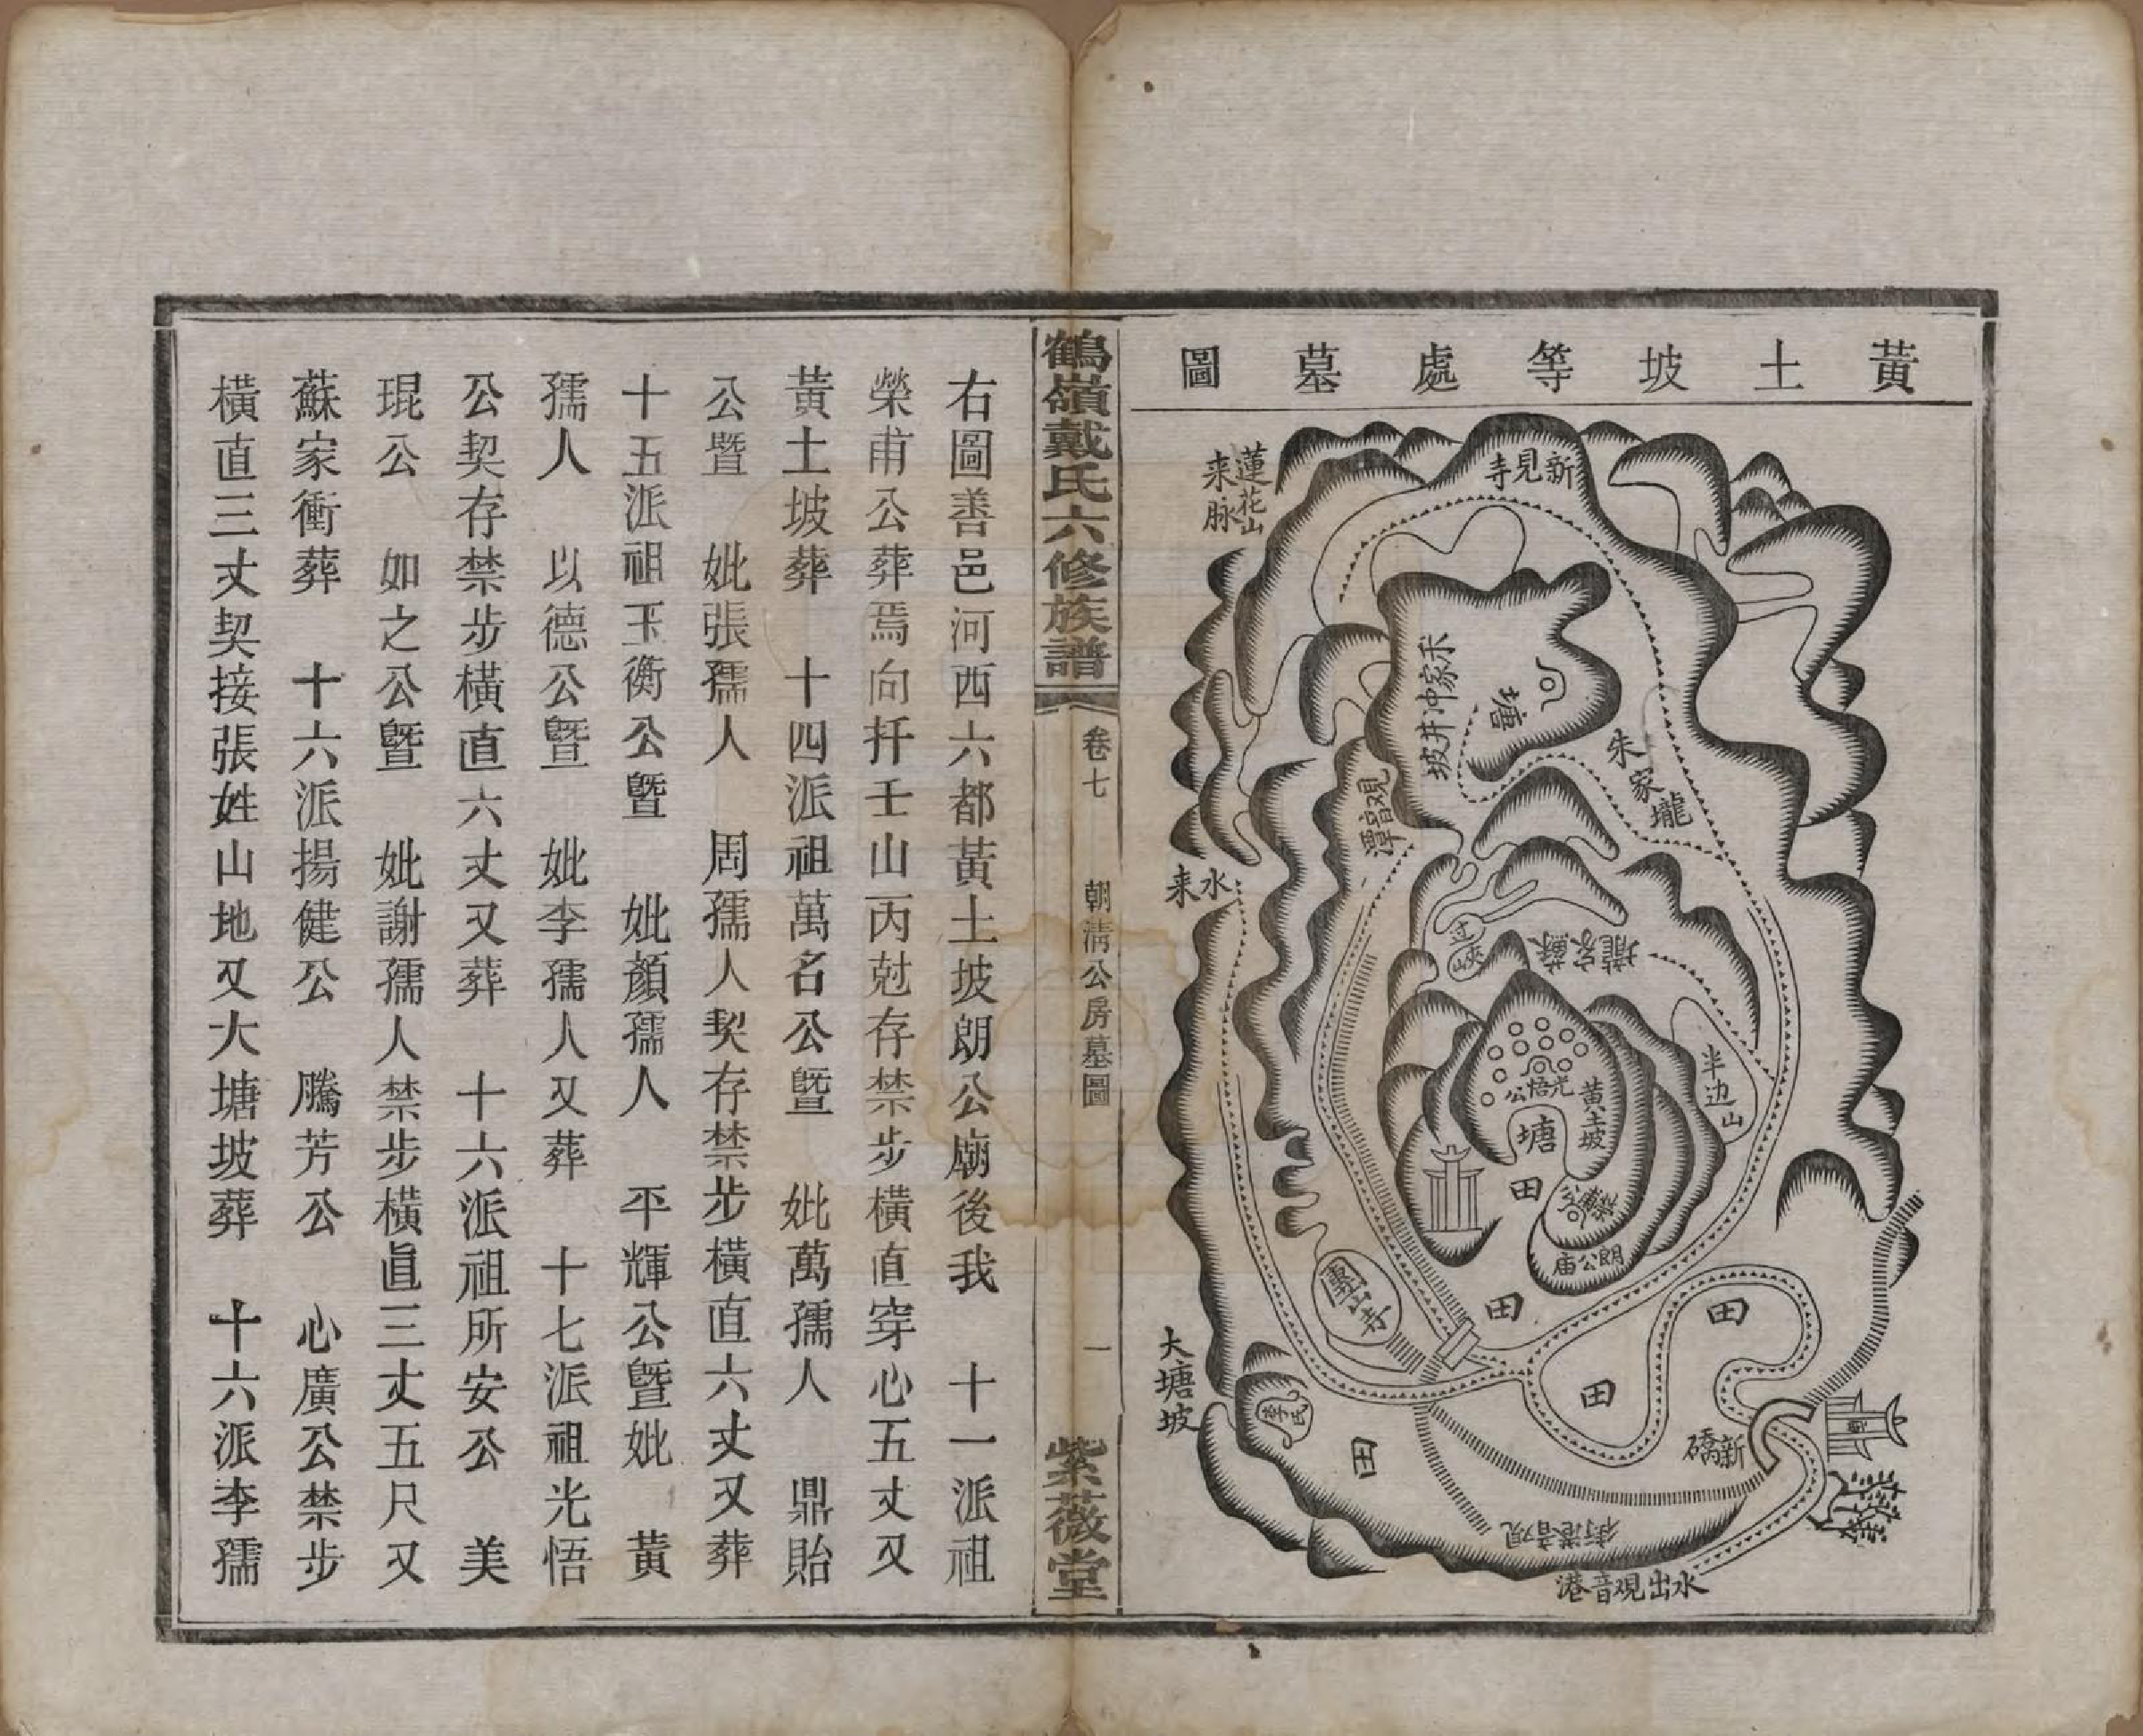 黃土坡等處墓圖
蓮花山
来脉
新見寺
禾家冲井坡
塘
朱家壠
觀音潭
水来
过峽
蘇家壠
半边山
光悟公
黄土坡
塘
田
朗公庙
團山寺
田
田
田
田
李氏
大塘坡
新礄
觀音港街
水出觀音港
鶴嶺戴氏六修族譜
卷七
朝清公房墓圖
一
紫薇堂
右圖善邑河西六都黃土坡朗公廟後我　十一派祖
榮甫公葬焉向扦壬山丙兙存禁步橫直穿心五丈又
黃土坡葬　十四派祖萬名公暨　妣萬孺人　鼎貽
公暨　妣張孺人　周孺人契存禁步橫直六丈又葬
十五派祖玉衡公暨　妣顏孺人　平輝公暨妣　黃
孺人　以德公暨　妣李孺人又葬　十七派祖光悟
公契存禁步橫直六丈又葬　十六派祖所安公　美
琨公　如之公暨　妣謝孺人禁步橫直三丈五尺又
蘇家衝葬　十六派揚健公　騰芳公　心廣公禁步
橫直三丈契接張姓山地又大塘坡葬　十六派李孺